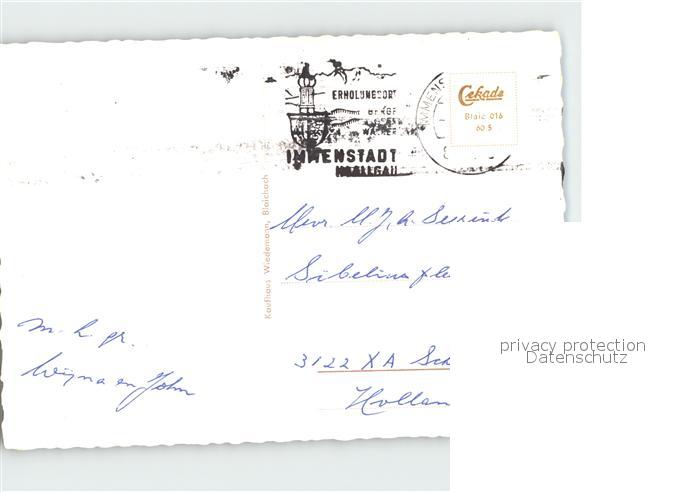 ERHOLUNGSORT
BERGE
SEEN
WÄLDER
IMMENSTADT
IM ALLGÄU
IMMENS
Cekade
Blaic 016
60 S
Kaufhaus Wiedemann, Blaichach
Mevr. M. J. A.
Sibelius
3122 XA Sch
Hollan
m. h. gr.
Wijna en John
privacy protection
Datenschutz